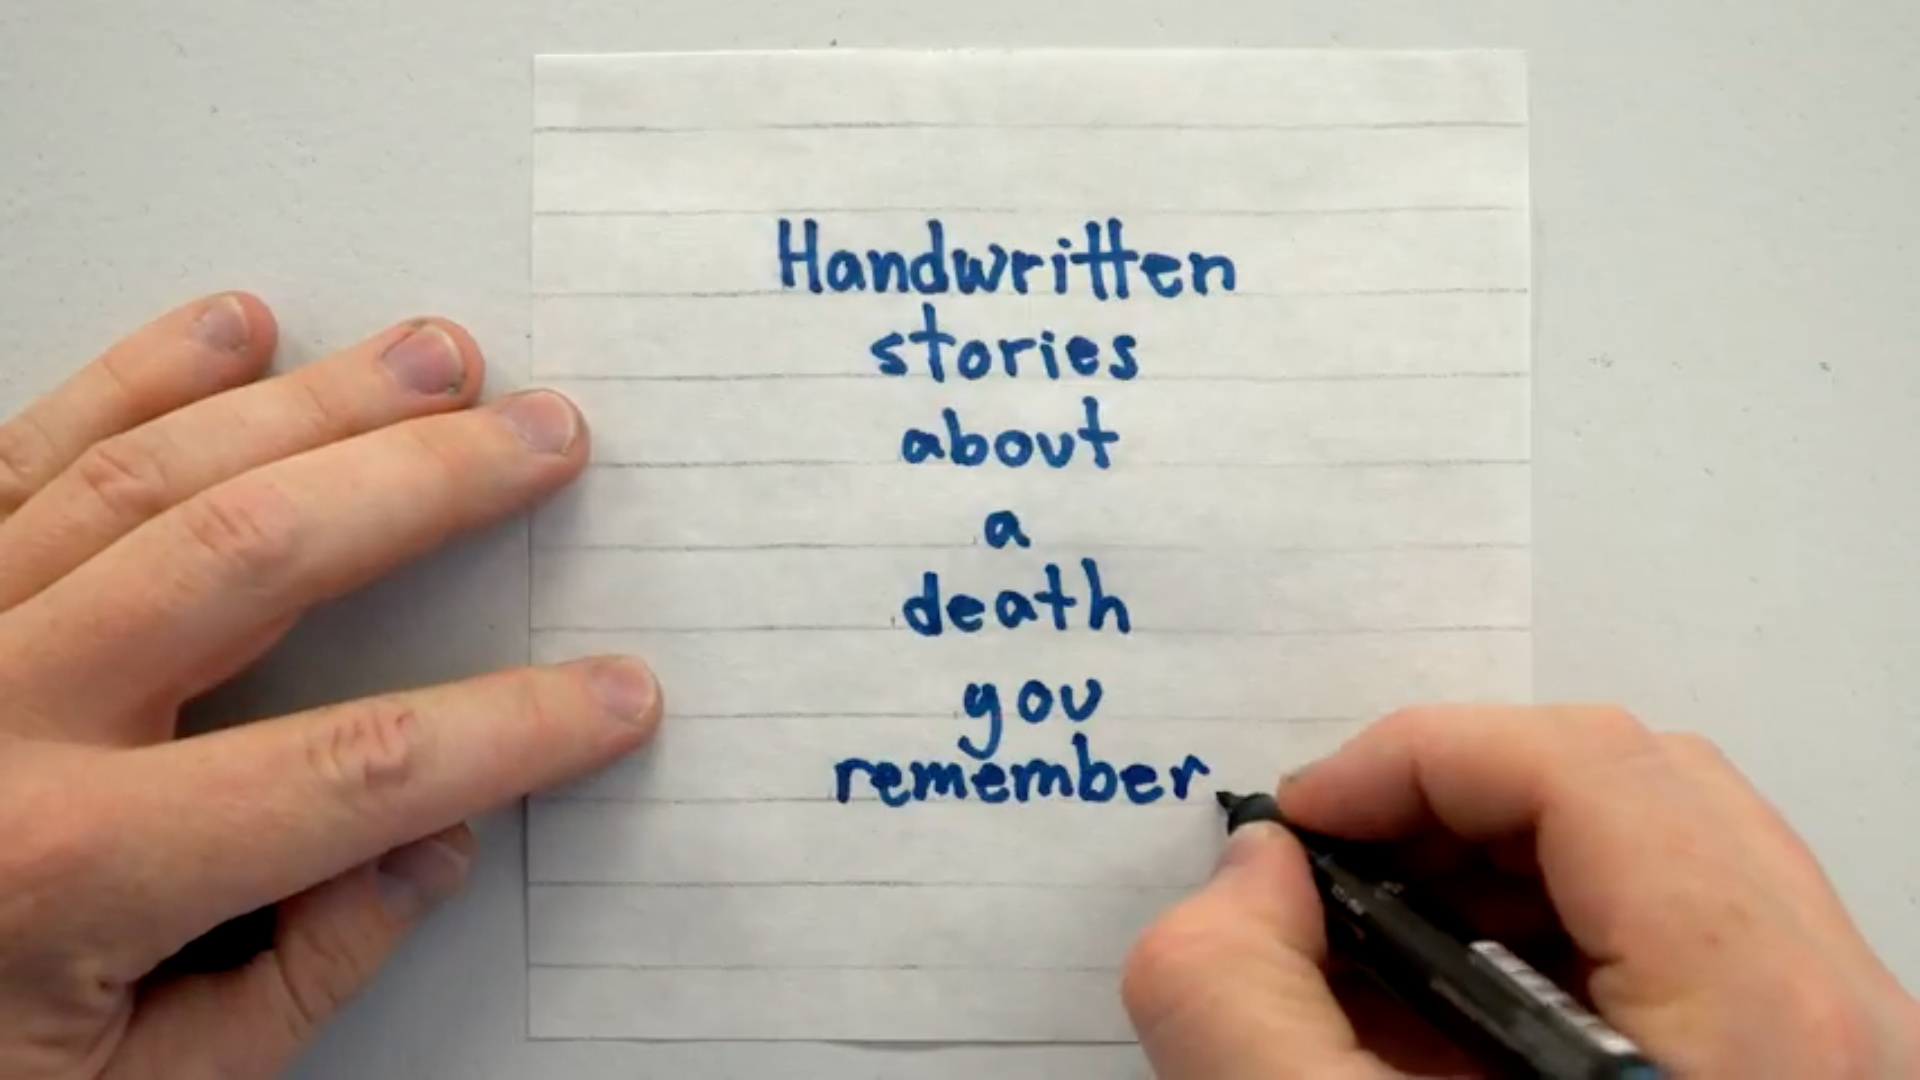 Handwritten
stories
about
a
death
you
remember